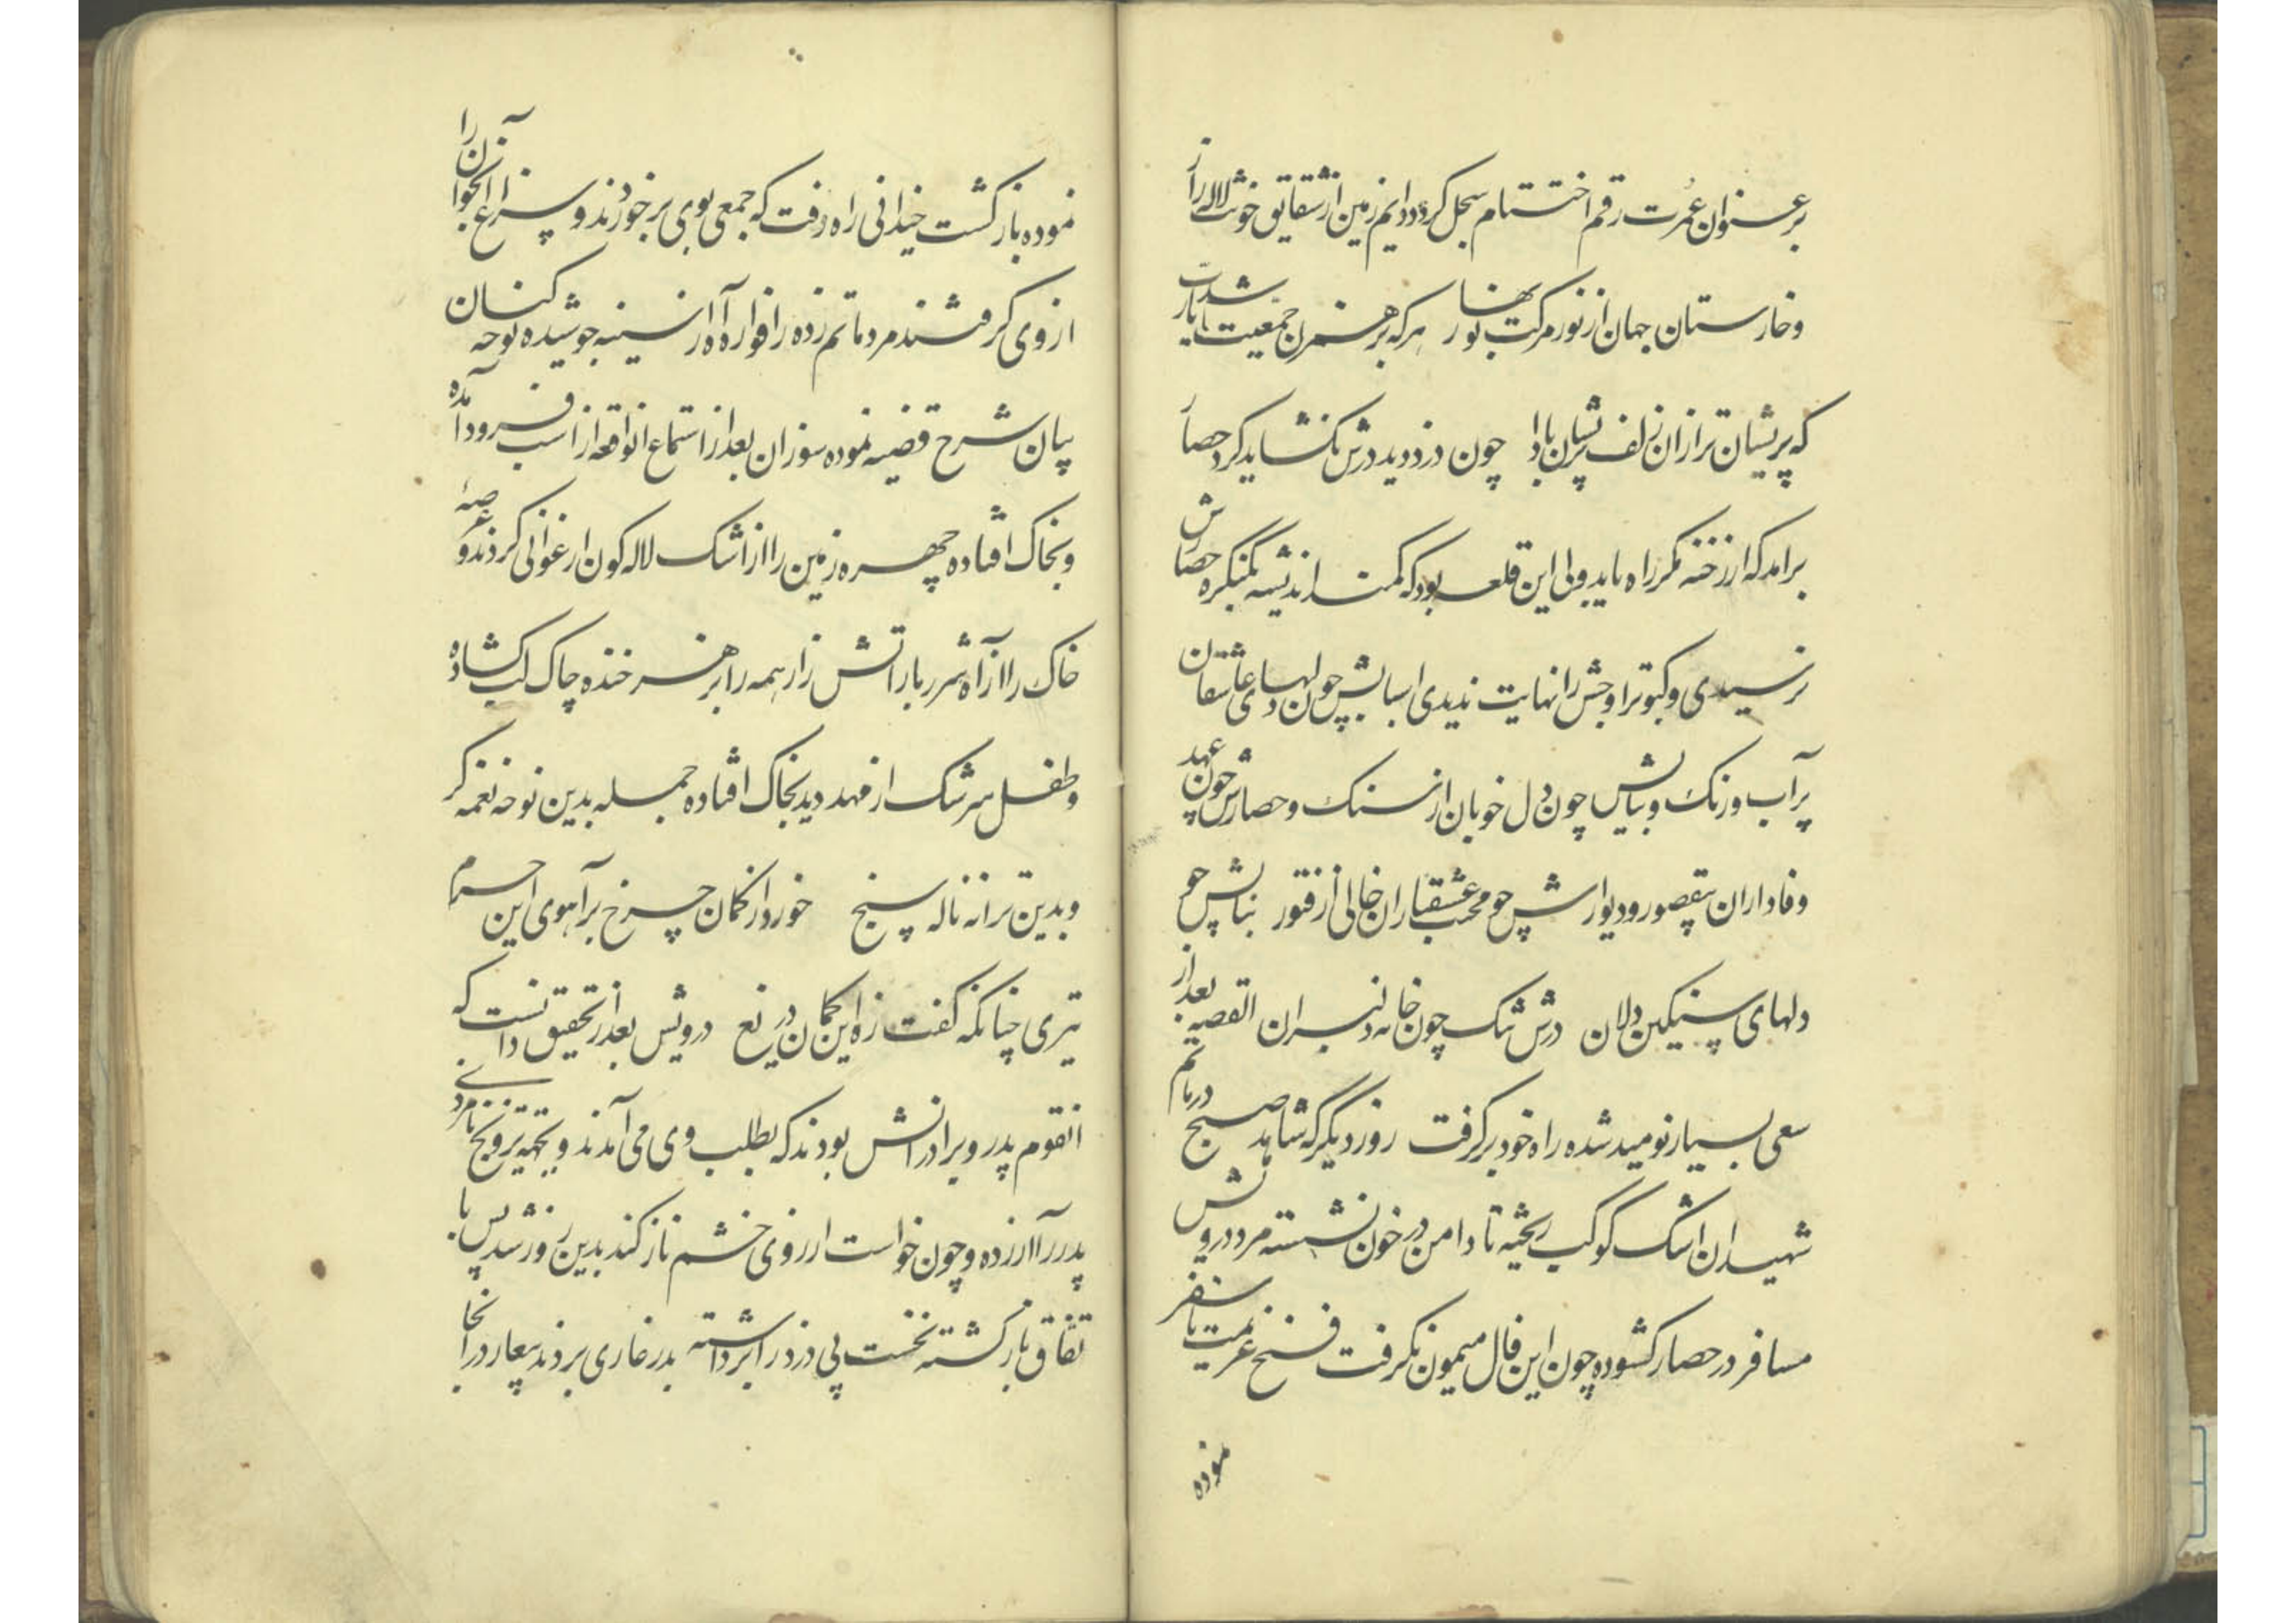 بر عنوان عمرت رقم اختتام سجل کردد دایم زمین از شقایق خونش لاله زار
و خارستان جهان از نور مرکب تو بر نها هرکه بر همزن جمعیت ما شد یارب
که پریشان تر ازان زلف پریشان بادا چون دزد دید درش نکشاید کرد حصار
برامد که از رخنه مکر راه یابد ولی این قلعه بود که کمند اندیشه بکنکره حصارش
نرسیدی و کبوتر اوجش را نهایت ندیدی اسبابش چون دلهای عاشقان
پر آب و رنک و بنایش چون دل خوبان از سنک و حصارش چون عهد
وفاداران بیقصور و دیوارش چو محبت عشقبازان خالی از فتور بنایش چو
دلهای سنکین دلان درش تنک چون خانه دلبران القصه بعد از
سعی بسیار نومید شده راه خود بر گرفت روز دیگر که شاهد صبح در ماتم
شهیدان اشک کوکب ریخته تا دامن در خون نشسته مرد درویش
مسافر در حصار کشوده چون این فال میمون نکرفت فسخ عزیمت سفر
نموده
نموده باز کشت خیدانی راه رفت که جمعی بوی بر خوردند و سراغ انجوان زن را
از وی کرفتند مرد ماتم زده را فواره آه از سینه جوشیده نوحه کنان
بیان شرح قضیه نموده سوزان بعد از استماع انواقعه از اسب فرود آمده
و بخاک افتاده چهره زمین را از اشک لاله کون ارغوانی کردند و عرصه
خاک را از آه شرر بار اتش زار همه را بر هنر خنده چاک لب کشاده
و طفل سرشک از مهد دید بخاک افتاده جمله بدین نوحه نغمه کر
و بدین ترانه ناله سنج خورد از کمان چرخ بر آهوی این حرم
تیری چنانکه کفت زه این کمان دریغ درویش بعد از تحقیق دانست که
انقوم پدر و برادرانش بودند که بطلب وی می آمدند و بجهة ترویج نامردی
پدر را آزرده و چون خواست از روی خشم ناز کند بدین روز رسد پس با
تفاق باز کشته نخست پی دزد را برداشته بدر غاری بردند بیعار در انجا